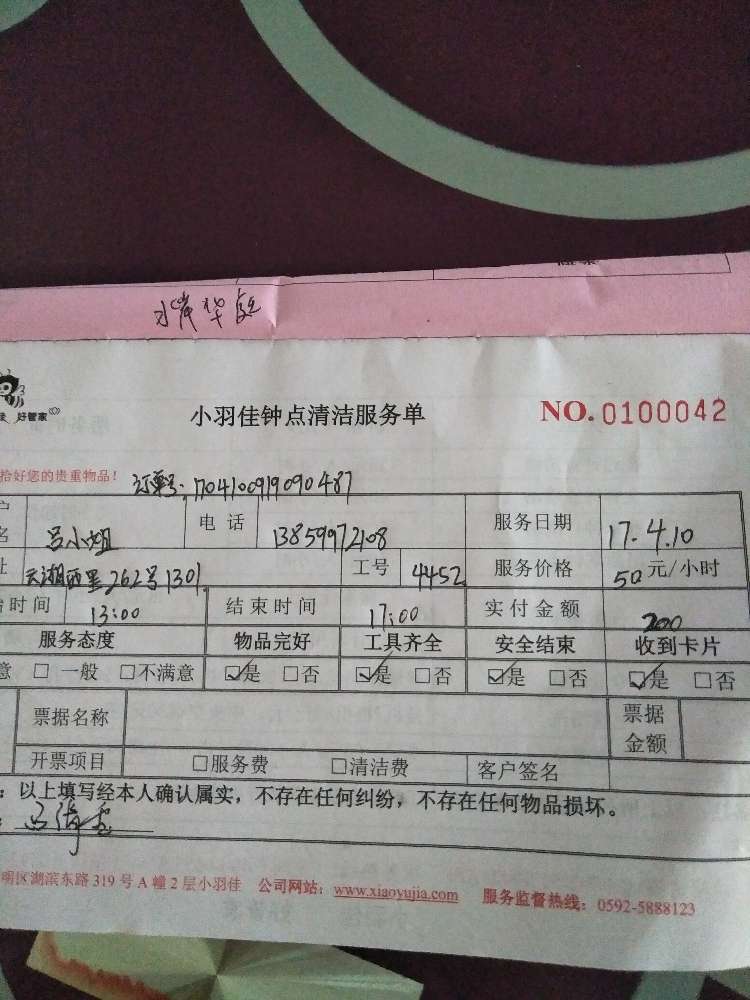 好管家
小羽佳钟点清洁服务单 NO. 0100042
拾好您的贵重物品！ 订单号: 1704100919090487
吕小姐 电话 13859972108 服务日期 17.4.10
262号1301 工号 4452 服务价格 50元/小时
时间 13:00 结束时间 17:00 实付金额 200
服务态度 物品完好 工具齐全 安全结束 收到卡片
意 □一般 □不满意 ☑是 □否 ☑是 □否 ☑是 □否 ☑是 □否
票据名称 票据金额
开票项目 □服务费 □清洁费 客户签名
：以上填写经本人确认属实，不存在任何纠纷，不存在任何物品损坏。
明区湖滨东路319号A幢2层小羽佳 公司网站：www.xiaoyujia.com 服务监督热线：0592-5888123